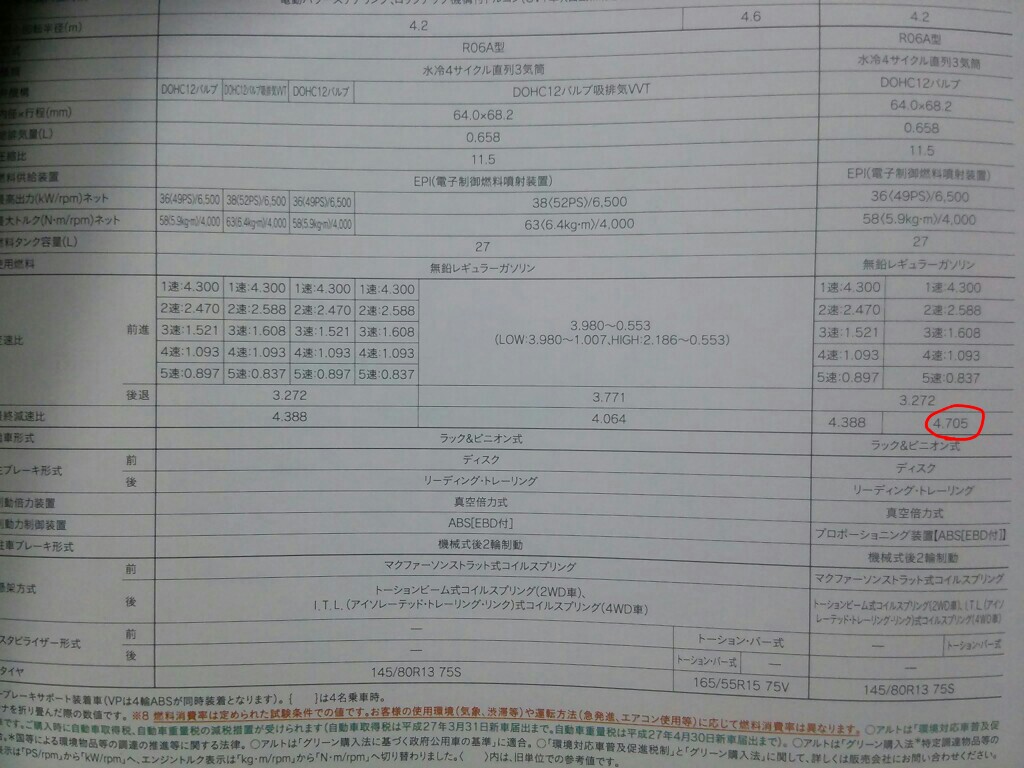 4.6 4.2
半径(m) 4.2
R06A型 R06A型
水冷4サイクル直列3気筒 水冷4サイクル直列3気筒
DOHC12バルブ DOHC12バルブ吸排気VVT DOHC12バルブ DOHC12バルブ吸排気VVT DOHC12バルブ
行程(mm) 64.0×68.2 64.0×68.2
排気量(L) 0.658 0.658
圧縮比 11.5 11.5
燃料供給装置 EPI(電子制御燃料噴射装置) EPI(電子制御燃料噴射装置)
最高出力(kW/rpm)ネット 36〈49PS〉/6,500 38〈52PS〉/6,500 36〈49PS〉/6,500 38〈52PS〉/6,500 36〈49PS〉/6,500
最大トルク(N・m/rpm)ネット 58〈5.9kg・m〉/4,000 63〈6.4kg・m〉/4,000 58〈5.9kg・m〉/4,000 63〈6.4kg・m〉/4,000 58〈5.9kg・m〉/4,000
燃料タンク容量(L) 27 27
使用燃料 無鉛レギュラーガソリン 無鉛レギュラーガソリン
変速比 前進
1速:4.300 1速:4.300 1速:4.300 1速:4.300 1速:4.300 1速:4.300
2速:2.470 2速:2.588 2速:2.470 2速:2.588 2速:2.470 2速:2.588
3速:1.521 3速:1.608 3速:1.521 3速:1.608 3速:1.521 3速:1.608
4速:1.093 4速:1.093 4速:1.093 4速:1.093 4速:1.093 4速:1.093
5速:0.897 5速:0.837 5速:0.897 5速:0.837 5速:0.897 5速:0.837
3.980〜0.553
(LOW:3.980〜1.007,HIGH:2.186〜0.553)
後退 3.272 3.771 3.272
最終減速比 4.388 4.064 4.388 4.705
車形式 ラック&ピニオン式 ラック&ピニオン式
主ブレーキ形式 前 ディスク ディスク
後 リーディング・トレーリング リーディング・トレーリング
制動倍力装置 真空倍力式 真空倍力式
制動力制御装置 ABS[EBD付] プロポーショニング装置【ABS[EBD付]】
駐車ブレーキ形式 機械式後2輪制動 機械式後2輪制動
懸架方式 前 マクファーソンストラット式コイルスプリング マクファーソンストラット式コイルスプリング
後 トーションビーム式コイルスプリング(2WD車)、
I.T.L.(アイソレーテッド・トレーリング・リンク)式コイルスプリング(4WD車)
トーションビーム式コイルスプリング(2WD車)、I.T.L.(アイソ
レーテッド・トレーリング・リンク)式コイルスプリング(4WD車)
スタビライザー形式 前 — トーション・バー式 — トーション・バー式
後 — トーション・バー式 — —
タイヤ 145/80R13 75S 165/55R15 75V 145/80R13 75S
ーブレーキサポート装着車(VPは4輪ABSが同時装着となります)。{ }は4名乗車時。
ナを折り畳んだ際の数値です。※8 燃料消費率は定められた試験条件での値です。お客様の使用環境(気象、渋滞等)や運転方法(急発進、エアコン使用等)に応じて燃料消費率は異なります。○アルトは「環境対応車普及促
車です。ご購入時に自動車取得税、自動車重量税の減税措置が受けられます(自動車取得税は平成27年3月31日新車届出まで。自動車重量税は平成27年4月30日新車届出まで)。○アルトは「グリーン購入法*特定調達物品等の
す。*国等による環境物品等の調達の推進等に関する法律。○アルトは「グリーン購入法に基づく政府公用車の基準」に適合。○「環境対応車普及促進税制」と「グリーン購入法」に関して、詳しくは販売会社にお問い合わせください。
表示は「PS/rpm」から「kW/rpm」へ、エンジントルク表示は「kg・m/rpm」から「N・m/rpm」へ切り替わりました。〈 〉内は、旧単位での参考値です。